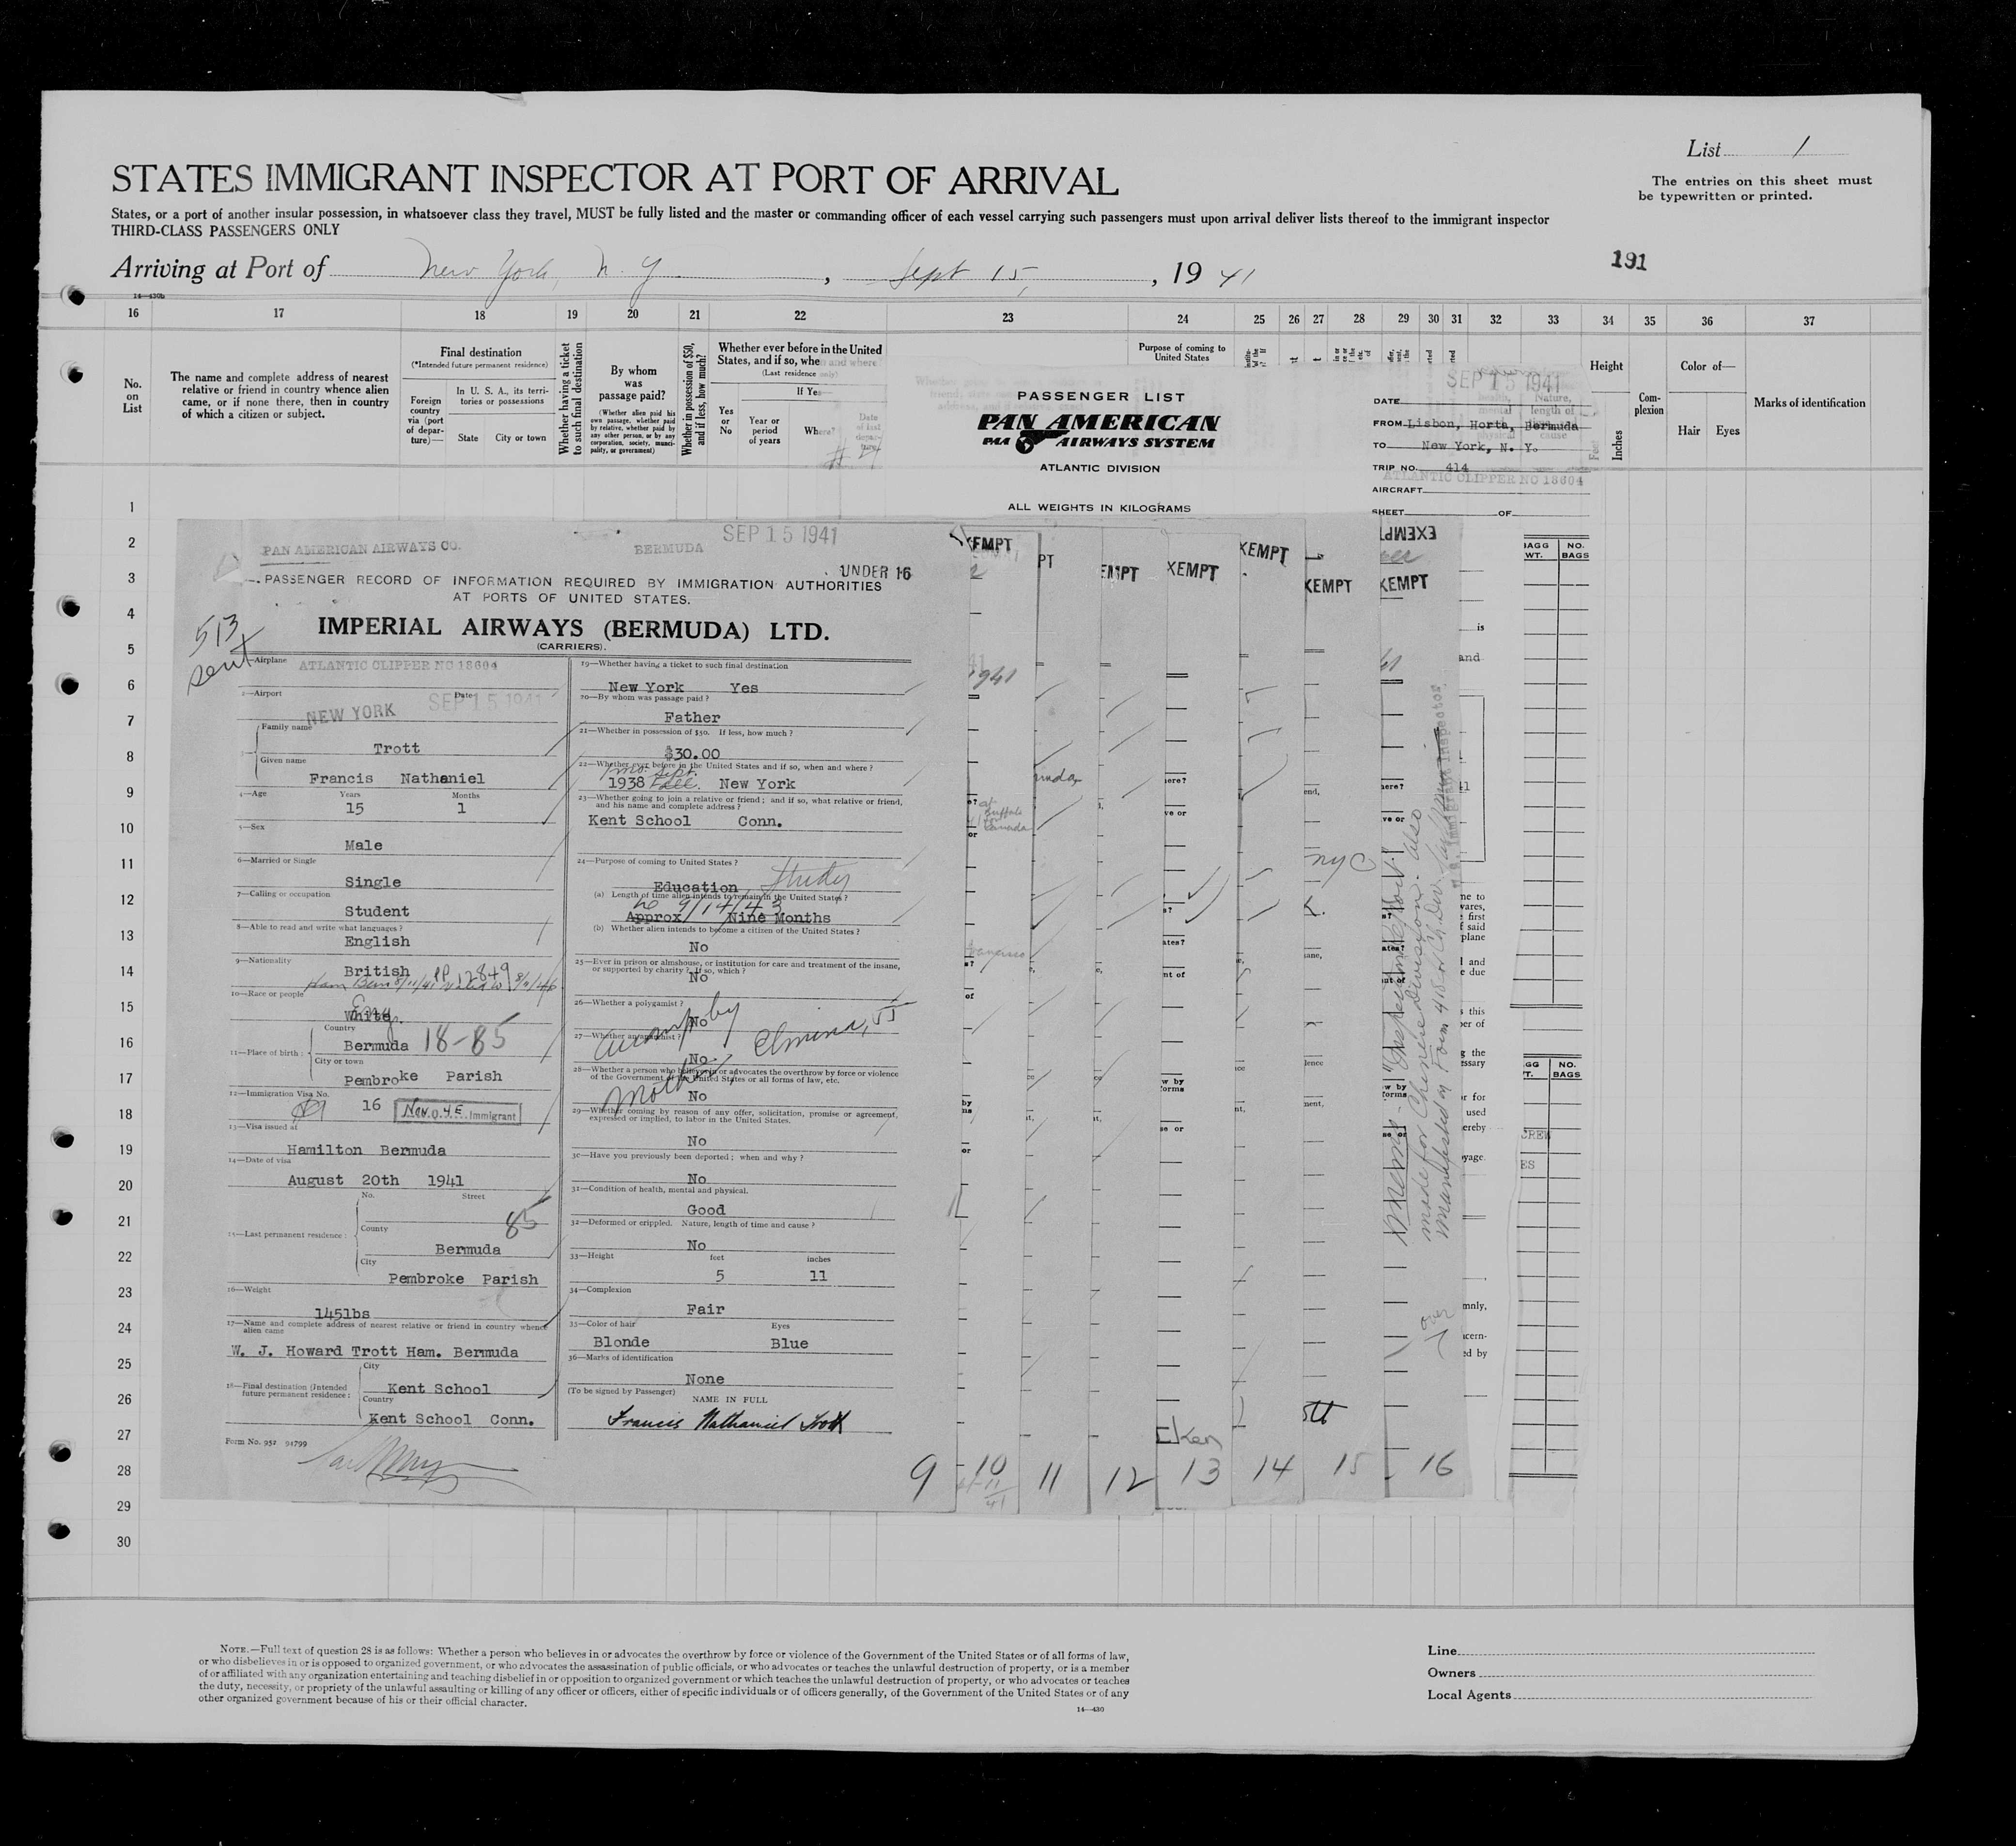 List 1
STATES IMMIGRANT INSPECTOR AT PORT OF ARRIVAL
The entries on this sheet must
be typewritten or printed.
States, or a port of another insular possession, in whatsoever class they travel, MUST be fully listed and the master or commanding officer of each vessel carrying such passengers must upon arrival deliver lists thereof to the immigrant inspector
THIRD-CLASS PASSENGERS ONLY
Arriving at Port of New York, N. Y., Sept 15, 1941
191
14—430b
16 17 18 19 20 21 22 23 24 25 26 27 28 29 30 31 32 33 34 35 36 37
No.
on
List
The name and complete address of nearest
relative or friend in country whence alien
came, or if none there, then in country
of which a citizen or subject.
Final destination
(*Intended future permanent residence)
Foreign
country
via (port
of depar-
ture)—
In U. S. A., its terri-
tories or possessions
State City or town
Whether having a ticket
to such final destination
By whom
was
passage paid?
(Whether alien paid his
own passage, whether paid
by relative, whether paid by
any other person, or by any
corporation, society, munici-
pality, or government)
Whether in possession of $50,
and if less, how much?
Whether ever before in the United
States, and if so, whe
(Last residence only)
If Yes—
Yes
or
No
Year or
period
of years
Where?
Purpose of coming to
United States
Height
Feet
Inches
Com-
plexion
Color of—
Hair Eyes
Marks of identification
PASSENGER LIST
PAN AMERICAN
PAA AIRWAYS SYSTEM
ATLANTIC DIVISION
ALL WEIGHTS IN KILOGRAMS
SEP 15 1941
DATE
FROM Lisbon, Horta, Bermuda
TO New York, N. Y.
TRIP NO. 414
ATLANTIC CLIPPER NC 18604
AIRCRAFT
SHEET OF
1
2
3
4
5
6
7
8
9
10
11
12
13
14
15
16
17
18
19
20
21
22
23
24
25
26
27
28
29
30
PAN AMERICAN AIRWAYS CO.
BERMUDA
SEP 15 1941
UNDER 16
PASSENGER RECORD OF INFORMATION REQUIRED BY IMMIGRATION AUTHORITIES
AT PORTS OF UNITED STATES.
513
sent
IMPERIAL AIRWAYS (BERMUDA) LTD.
(CARRIERS).
1—Airplane ATLANTIC CLIPPER NC 18604
2—Airport Date
NEW YORK SEP 15 1941
3— Family name
Trott
Given name
Francis Nathaniel
4—Age Years Months
15 1
5—Sex
Male
6—Married or Single
Single
7—Calling or occupation
Student
8—Able to read and write what languages?
English
9—Nationality
British PP 12849
10—Race or people
White
Eng.
11—Place of birth: Country
Bermuda 18-85
City or town
Pembroke Parish
12—Immigration Visa No.
16 Non.Q.4.E. Immigrant
13—Visa issued at
Hamilton Bermuda
14—Date of visa
August 20th 1941
15—Last permanent residence: No. Street
85
County
Bermuda
City
Pembroke Parish
16—Weight
145lbs
17—Name and complete address of nearest relative or friend in country whence
alien came
W. J. Howard Trott Ham. Bermuda
18—Final destination (Intended
future permanent residence:
City
Kent School
Country
Kent School Conn.
Form No. 952 91799
19—Whether having a ticket to such final destination
New York Yes
20—By whom was passage paid?
Father
21—Whether in possession of $50. If less, how much?
$30.00
22—Whether ever before in the United States and if so, when and where?
1 mo. Sept.
1938 Fall. New York
23—Whether going to join a relative or friend; and if so, what relative or friend,
and his name and complete address?
Kent School Conn.
24—Purpose of coming to United States?
Education Study
(a) Length of time alien intends to remain in the United States?
to 9/14/43
Approx Nine Months
(b) Whether alien intends to become a citizen of the United States?
No
25—Ever in prison or almshouse, or institution for care and treatment of the insane,
or supported by charity? If so, which?
No
26—Whether a polygamist?
No
27—Whether an anarchist?
No
accomp by
mother
28—Whether a person who believes in or advocates the overthrow by force or violence
of the Government of the United States or all forms of law, etc.
No
29—Whether coming by reason of any offer, solicitation, promise or agreement,
expressed or implied, to labor in the United States.
No
30—Have you previously been deported; when and why?
No
31—Condition of health, mental and physical.
Good
32—Deformed or crippled. Nature, length of time and cause?
No
33—Height feet inches
5 11
34—Complexion
Fair
35—Color of hair Eyes
Blonde Blue
36—Marks of identification
None
(To be signed by Passenger)
NAME IN FULL
Francis Nathaniel Trott
EMPT
PT
EMPT
XEMPT
XEMPT
XEMPT
EXEMPT
XEMPT
1941
at
Buffalo
Canada
nyc
made for Chinese Division. Also
BAGG
WT.
NO.
BAGS
NO.
BAGS
CREW
9 10 11 12 13 14 15 16
NOTE.—Full text of question 28 is as follows: Whether a person who believes in or advocates the overthrow by force or violence of the Government of the United States or of all forms of law,
or who disbelieves in or is opposed to organized government, or who advocates the assassination of public officials, or who advocates or teaches the unlawful destruction of property, or is a member
of or affiliated with any organization entertaining and teaching disbelief in or opposition to organized government or which teaches the unlawful destruction of property, or who advocates or teaches
the duty, necessity, or propriety of the unlawful assaulting or killing of any officer or officers, either of specific individuals or of officers generally, of the Government of the United States or of any
other organized government because of his or their official character.
14—430
Line
Owners
Local Agents